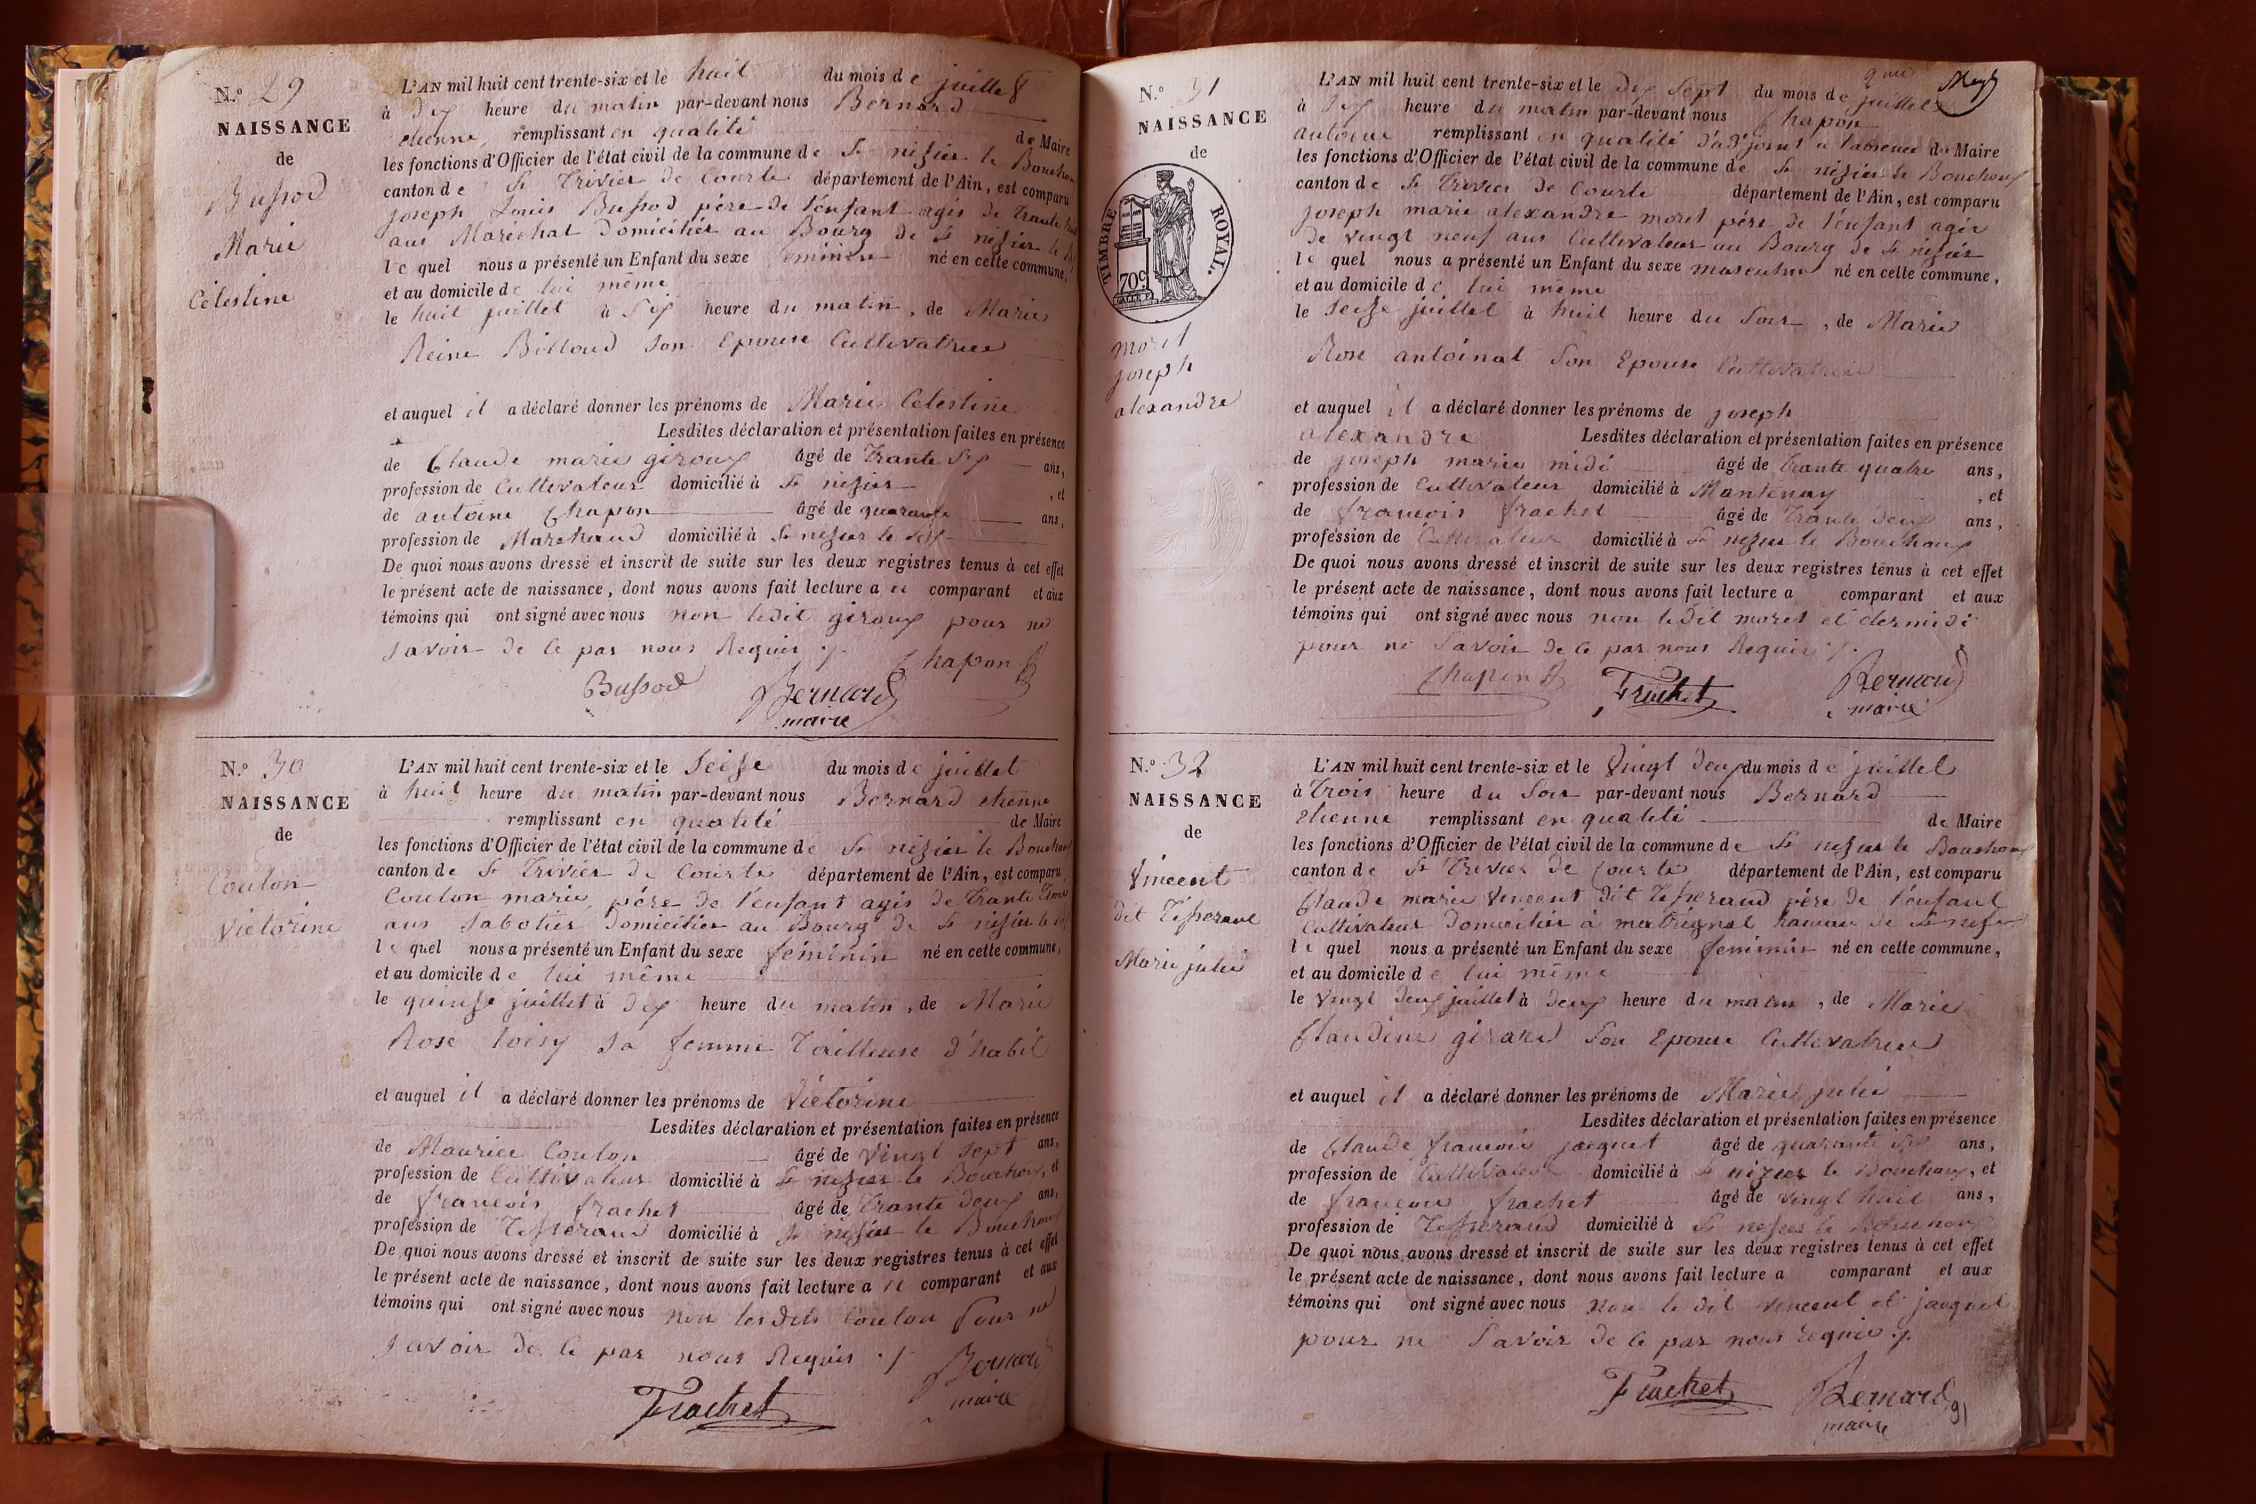 N.º 29
NAISSANCE
de
Bussod
Marie
Célestine
L'AN mil huit cent trente-six et le huit du mois de juillet
à dix heure du matin par-devant nous Bernard
etienne, remplissant en qualité de Maire
les fonctions d'Officier de l'état civil de la commune de St nizier le Bouchoux
canton de St Trivier de Courte département de l'Ain, est comparu
joseph Louis Bussod père de l'enfant agés de trante
ans Marechal domicilier au Bourg de St nizier le
le quel nous a présenté un Enfant du sexe féminin né en cette commune,
et au domicile de lui même
le huit juillet à Six heure du matin, de Marie
Reine Billoud son Epouse Cultivatrice
et auquel il a déclaré donner les prénoms de Marie Celestine
Lesdites déclaration et présentation faites en présence
de Claude marie giroux âgé de trante Six ans,
profession de Cultivateur domicilié à St nizier, et
de antoine Chapon âgé de quarante ans,
profession de Marchand domicilié à St nizier le
De quoi nous avons dressé et inscrit de suite sur les deux registres tenus à cet effet
le présent acte de naissance, dont nous avons fait lecture a u comparant et aux
témoins qui ont signé avec nous non ledit giroux pour ne
savoir de ce par nous Requis ./.
Chapon
Bussod Bernard
maire
N.º 30
NAISSANCE
de
Coulon
Victorine
L'AN mil huit cent trente-six et le Seize du mois de juillet
à huit heure du matin par-devant nous Bernard etienne
remplissant en qualité de Maire
les fonctions d'Officier de l'état civil de la commune de St nizier le Bouchoux
canton de St Trivier de Courte département de l'Ain, est comparu
Coulon marie, père de l'enfant agés de trante
ans Sabotier domicilier au Bourg de St nizier le
le quel nous a présenté un Enfant du sexe féminin né en cette commune,
et au domicile de lui même
le quinze juillet à dix heure du matin, de Marie
Rose loisy sa femme Tailleuse d'habit
et auquel il a déclaré donner les prénoms de Victorine
Lesdites déclaration et présentation faites en présence
de Maurice Coulon âgé de vingt sept ans,
profession de Cultivateur domicilié à St nizier le Bouchoux, et
de francois frachet âgé de trante deux ans,
profession de Tisserand domicilié à St nizier le Bouchoux
De quoi nous avons dressé et inscrit de suite sur les deux registres tenus à cet effet
le présent acte de naissance, dont nous avons fait lecture a u comparant et aux
témoins qui ont signé avec nous non les dits Coulon Pour ne
savoir de ce par nous Requis ./.
Frachet Bernard
maire
N.º 31
NAISSANCE
de
TIMBRE ROYAL.
70c
moret
joseph
alexandre
L'AN mil huit cent trente-six et le dix Sept du mois de juillet
à dix heure du matin par-devant nous Chapon
antoine remplissant en qualité d'adjoint a l'absence du Maire
les fonctions d'Officier de l'état civil de la commune de St nizier le Bouchoux
canton de St Trivier de Courte département de l'Ain, est comparu
joseph marie alexandre moret père de l'enfant agés
de vingt neuf ans Cultivateur au Bourg de St nizier
le quel nous a présenté un Enfant du sexe masculin né en cette commune,
et au domicile de lui même
le seize juillet à huit heure du Soir, de Marie
Rose antoinat Son Epouse Cultivatrice
et auquel il a déclaré donner les prénoms de joseph
alexandre Lesdites déclaration et présentation faites en présence
de joseph marie midi âgé de trante quatre ans,
profession de Cultivateur domicilié à Mantenay, et
de francois frachet âgé de trante deux ans,
profession de Cultivateur domicilié à St nizier le Bouchoux
De quoi nous avons dressé et inscrit de suite sur les deux registres tenus à cet effet
le présent acte de naissance, dont nous avons fait lecture a comparant et aux
témoins qui ont signé avec nous non ledit moret et midi
pour ne Savoir de ce par nous Requis ./.
Chapon Frachet Bernard
maire
N.º 32
NAISSANCE
de
Vincent
dit Tisserand
Marie julie
L'AN mil huit cent trente-six et le Vingt deux du mois de juillet
à Trois heure du Soir par-devant nous Bernard
etienne remplissant en qualité de Maire
les fonctions d'Officier de l'état civil de la commune de St nizier le Bouchoux
canton de St Trivier de Courte département de l'Ain, est comparu
Claude marie Vincent dit Tisserand père de l'enfant
Cultivateur domicilier à hameau de St nizier
le quel nous a présenté un Enfant du sexe feminin né en cette commune,
et au domicile de lui même
le Vingt deux juillet à deux heure du matin, de Marie
Claudine girard Son Epouse Cultivatrice
et auquel il a déclaré donner les prénoms de Marie julie
Lesdites déclaration et présentation faites en présence
de Claude francois jacquet âgé de quarante ans,
profession de Cultivateur domicilié à St nizier le Bouchoux, et
de francois frachet âgé de vingt huit ans,
profession de Tisserand domicilié à St nizier le Bouchoux
De quoi nous avons dressé et inscrit de suite sur les deux registres tenus à cet effet
le présent acte de naissance, dont nous avons fait lecture a comparant et aux
témoins qui ont signé avec nous non le dit vincent et jacquet
pour ne Savoir de ce par nous requis ./.
Frachet Bernard
maire
91